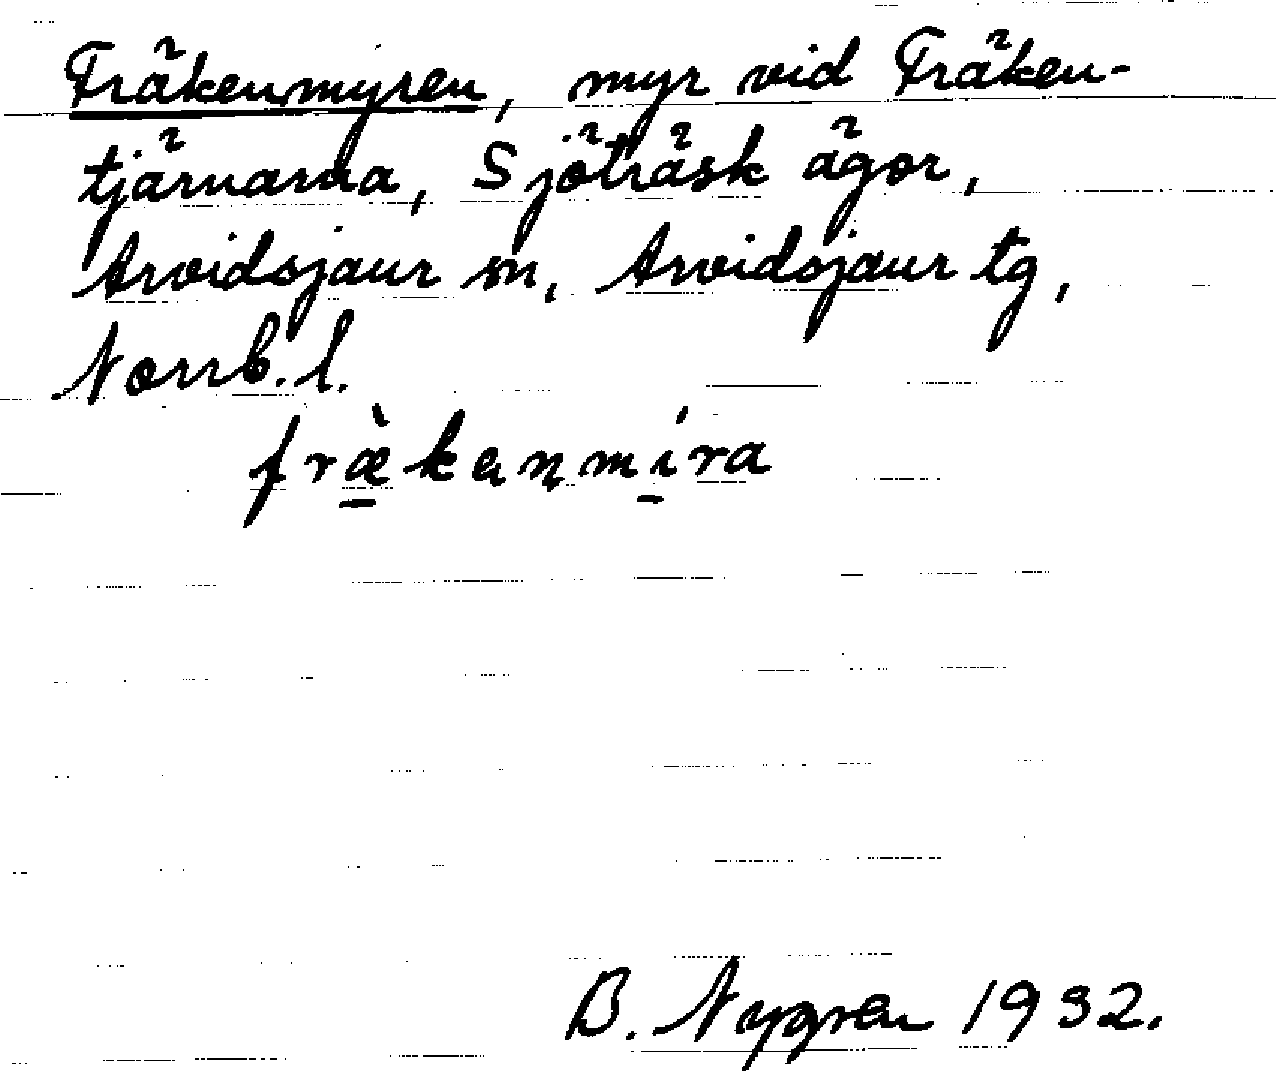 Fräkenmyren, myr vid Fräken-
tjärnarna, Sjöträsk ägor,
Arvidsjaur sn, Arvidsjaur tg,
Norrb. l.
fræ̀kenmíra
B. Nygren 1932.